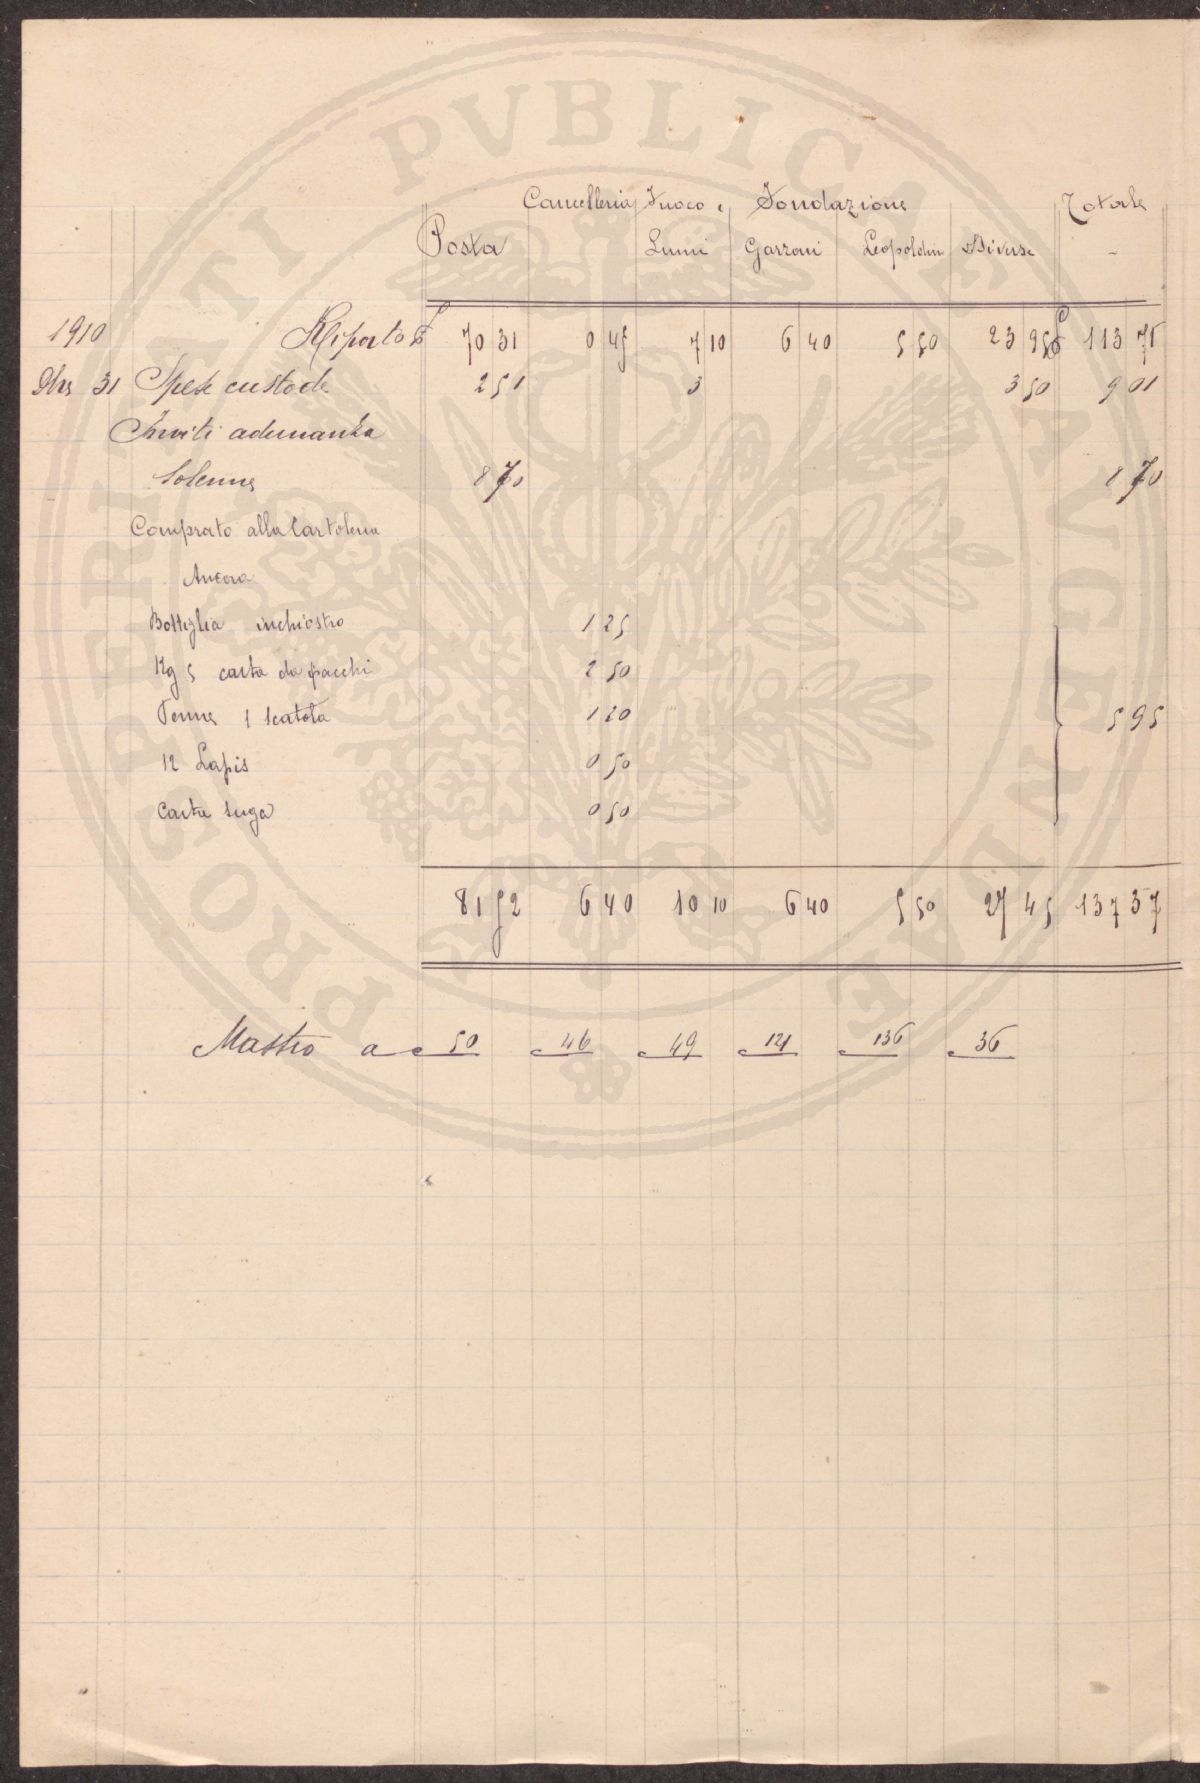 Cancelleria Fuoco e Fondazione Totale
Posta Lumi Garzoni Leopoldin Diverse -
1910 Riporto £ 70 31 0 45 7 10 6 40 5 50 23 95 £ 113 71
Dbre 31 Spese custode 2 51 3 3 50 9 01
Inviti adunanza
Solenne 8 70 8 70
Comprato alla Cartoleria
Ancora
Bottiglia inchiostro 1 25
Kg 5 carta da pacchi 2 50
Penne 1 scatola 1 20 5 95
12 Lapis 0 50
Carta suga 0 50
81 52 6 40 10 10 6 40 5 50 27 45 137 37
Mastro a c 50 c 46 c 49 c 121 c 136 c 36
PROSPERITATI PVBLICAE AVGENDAE